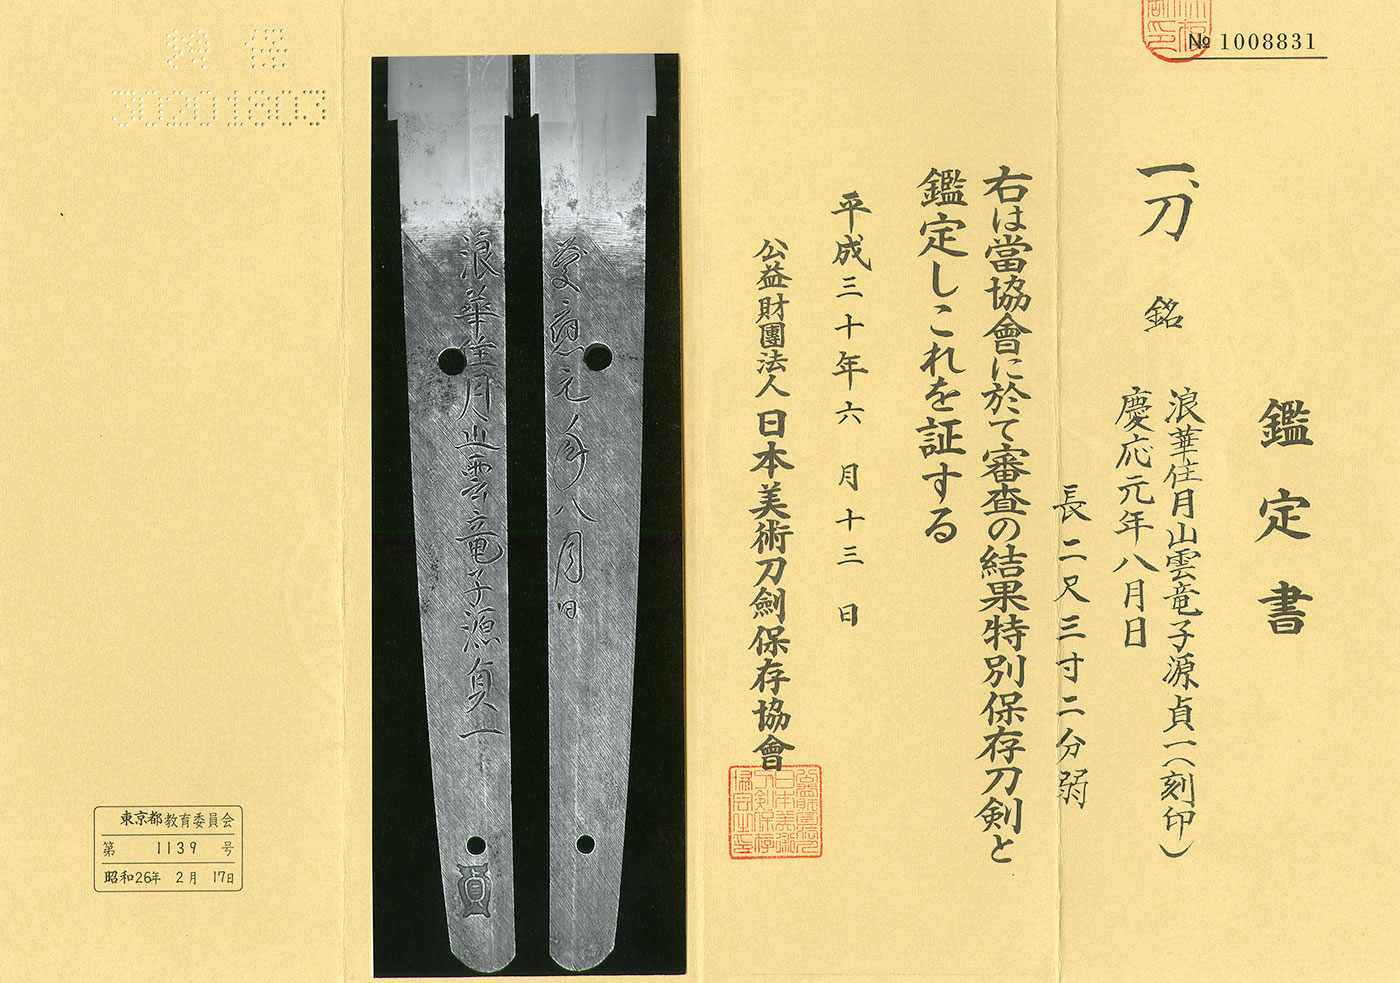 № 1008831
鑑定書
一、刀 銘
浪華住月山雲竜子源貞一(刻印)
慶応元年八月日
長二尺三寸二分弱
右は當協會に於て審査の結果特別保存刀剣と
鑑定しこれを証する
平成三十年六月十三日
公益財團法人 日本美術刀劍保存協會
慶應元年八月日
浪華住月山雲竜子源貞一
貞
30201803
東京都教育委員会
第 1139 号
昭和26年 2月 17日